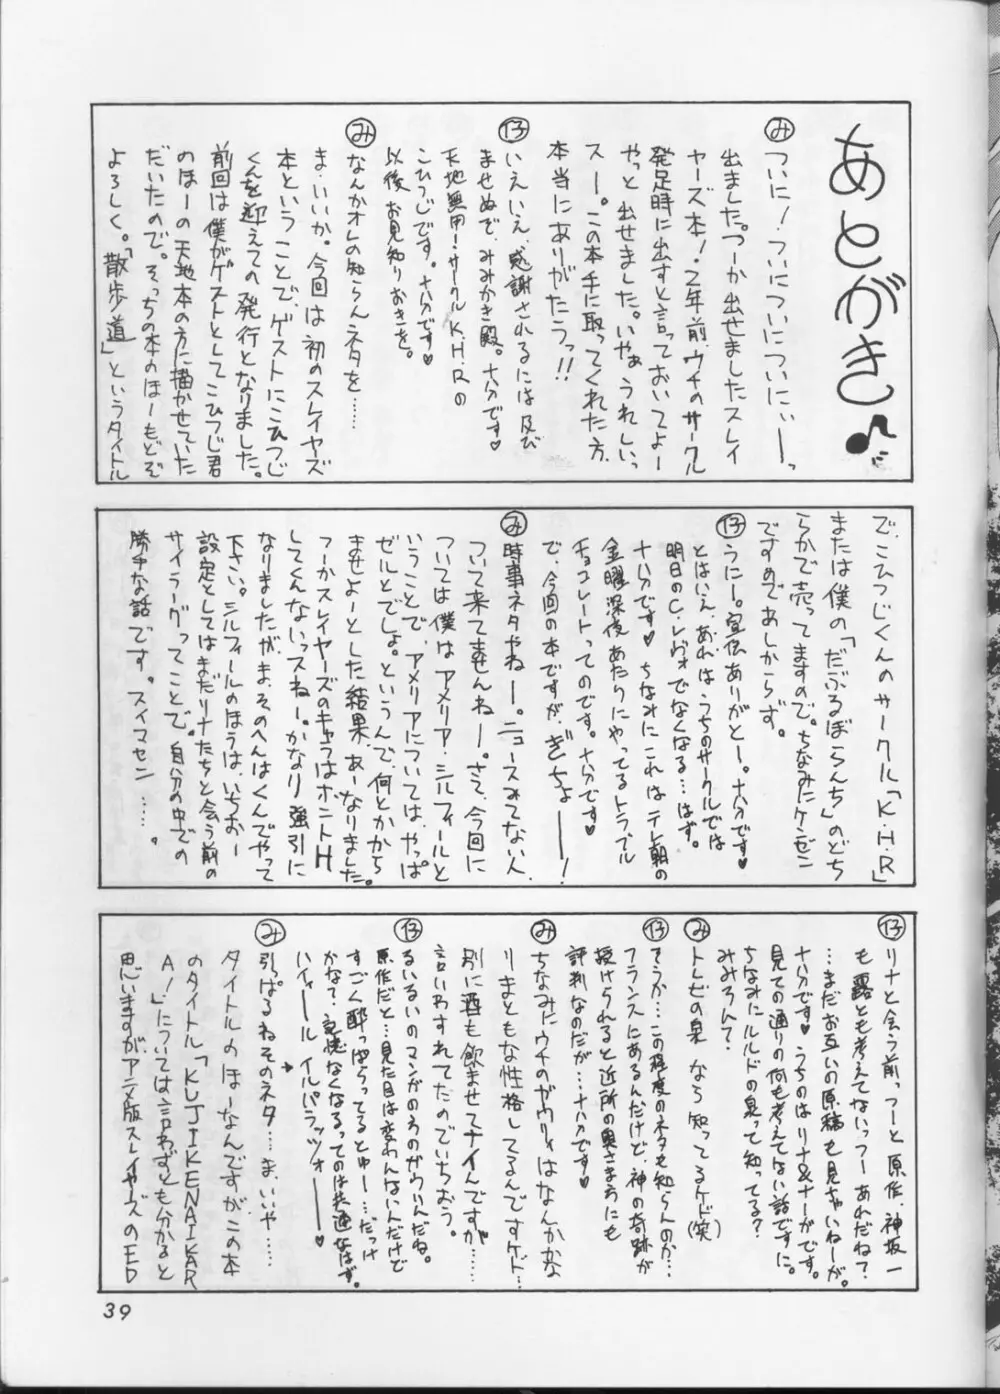 あとがき♪
み ついに!ついについについにぃーっ
出ました。つーか出せましたスレイ
ヤーズ本!2年前、ウチのサークル
発足時に出すと言っておいてよー
やっと出せました。いやぁうれしいっ
スー。この本手に取ってくれた方、
本当にありがたうっ!!
仔 いえいえ、感謝されるには及び
ませぬで、みみかき殿。十分です♥
天地無用!サークルK.H.Rの
こひつじです。十分です♥
以後、お見知りおきを。
み なんかオレの知らんネタを……
ま、いいか。今回は初のスレイヤーズ
本ということで、ゲストにこひつじ
くんを迎えての発行となりました。
前回は僕がゲストとしてこひつじ君
のほーの天地本の方に描かせていた
だいたので。そっちの本のほーもどぞ
よろしく。「散歩道」というタイトル
で、こひつじくんのサークル「K.H.R」
または僕の「だぶるぼらんち」のどち
らかで売ってますので。ちなみにケンゼン
ですのであしからず。
仔 うにー。宣伝ありがとー。十分です♥
とはいえ、あれはうちのサークルでは
明日のC.レヴォでなくなる…はず。
十分です♥ちなみにこれはテレ朝の
金曜深夜あたりにやってるトラブル
チョコレートってのです。十分です♥
で、今回の本ですが、ぎちょーーー!
み 時事ネタやねー。ニュースみてない人、
ついて来てませんねー。さて、今回に
ついては僕はアメリア・シルフィールと
いうことで、アメリアについては、やっぱ
ゼルとでしょ。というんで、何とかから
ませよーとした結果、あーなりました。
つーかスレイヤーズのキャラはホントH
してくんないっスねー。かなり強引に
なりましたが、ま、そのへんはくんでやって
下さい。シルフィールのほうは、いちおー
設定としてはまだリナたちと会う前の
サイラーグってことで。自分の中での
勝手な話です。スイマセン……。
仔 リナと会う前っつーと原作、神坂一
も露とも考えてないっつーあれだね?
…まだお互いの原稿も見ちゃいねーが。
十分です♥うちのはリナ&ナーガです。
見ての通りの何も考えてない話ですに。
ちなみにルルドの泉って知ってる?
みみろん?
み トレビの泉なら知ってるケド(笑)
仔 そうか…この程度のネタも知らんのか…
フランスにあるんだけど、神の奇跡が
授けられると近所の奥さまちにも
評判なのだが…十分です♥
み ちなみにウチのガウリィはなんかかな
りまともな性格してるんですケド…
別に酒も飲ませてナイんですが……
言いわすれてたのでいちおう。
仔 るいるいのマンガのろのがウリィんだね。
原作だと…見た目は変わんないんだけど
すごく酔っぱらってるとゆー…だっけ
かな?記憶なくなるってのは共通なはず。
ハイィール イルパラッツォーーー♥
み 引っぱるねそのネタ…ま、いいや…
タイトルのほーなんですがこの本
のタイトル「KUJIKENAIKAR
A!」については言わずとも分かると
思いますが、アニメ版スレイヤーズのED
39